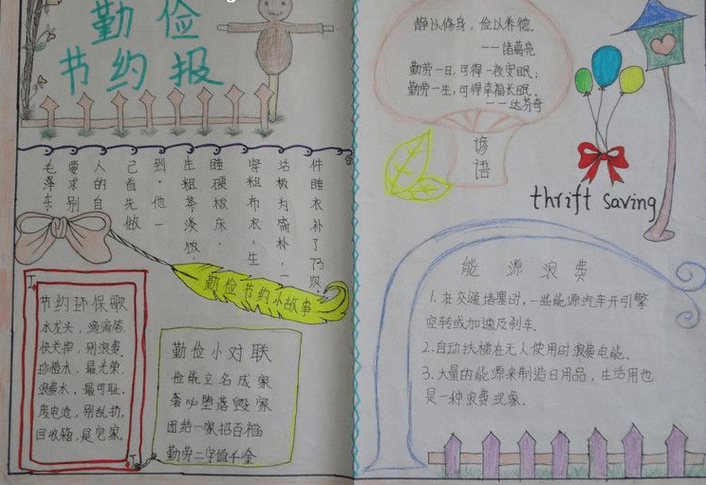 勤俭
节约报
毛泽东
要求别
人的自
己首先做
到，他一
庄粗茶淡饭，
睡硬板床，
穿粗布衣，生
活极为简朴，一
件睡衣补了73次，
勤俭节约小故事
节约环保歌
水龙头，滴滴答，
快关押，别浪费。
珍惜水，最光荣，
浪费水，最可耻。
废电池，别乱扔，
回收箱，是它家。
勤俭小对联
俭能立名成家
奢必堕落毁家
团结一家招百福
勤劳二字值千金
静以修身，俭以养德。
——诸葛亮
勤劳一日，可得一夜安眠；
勤劳一生，可得幸福长眠。
——达芬奇
谚语
thrift saving
能源浪费
1.在交通堵塞时，一些能源汽车开引擎
空转或加速及刹车.
2.自动扶梯在无人使用时浪费电能.
3.大量的能源来制造日用品，生活用也
是一种浪费现象.